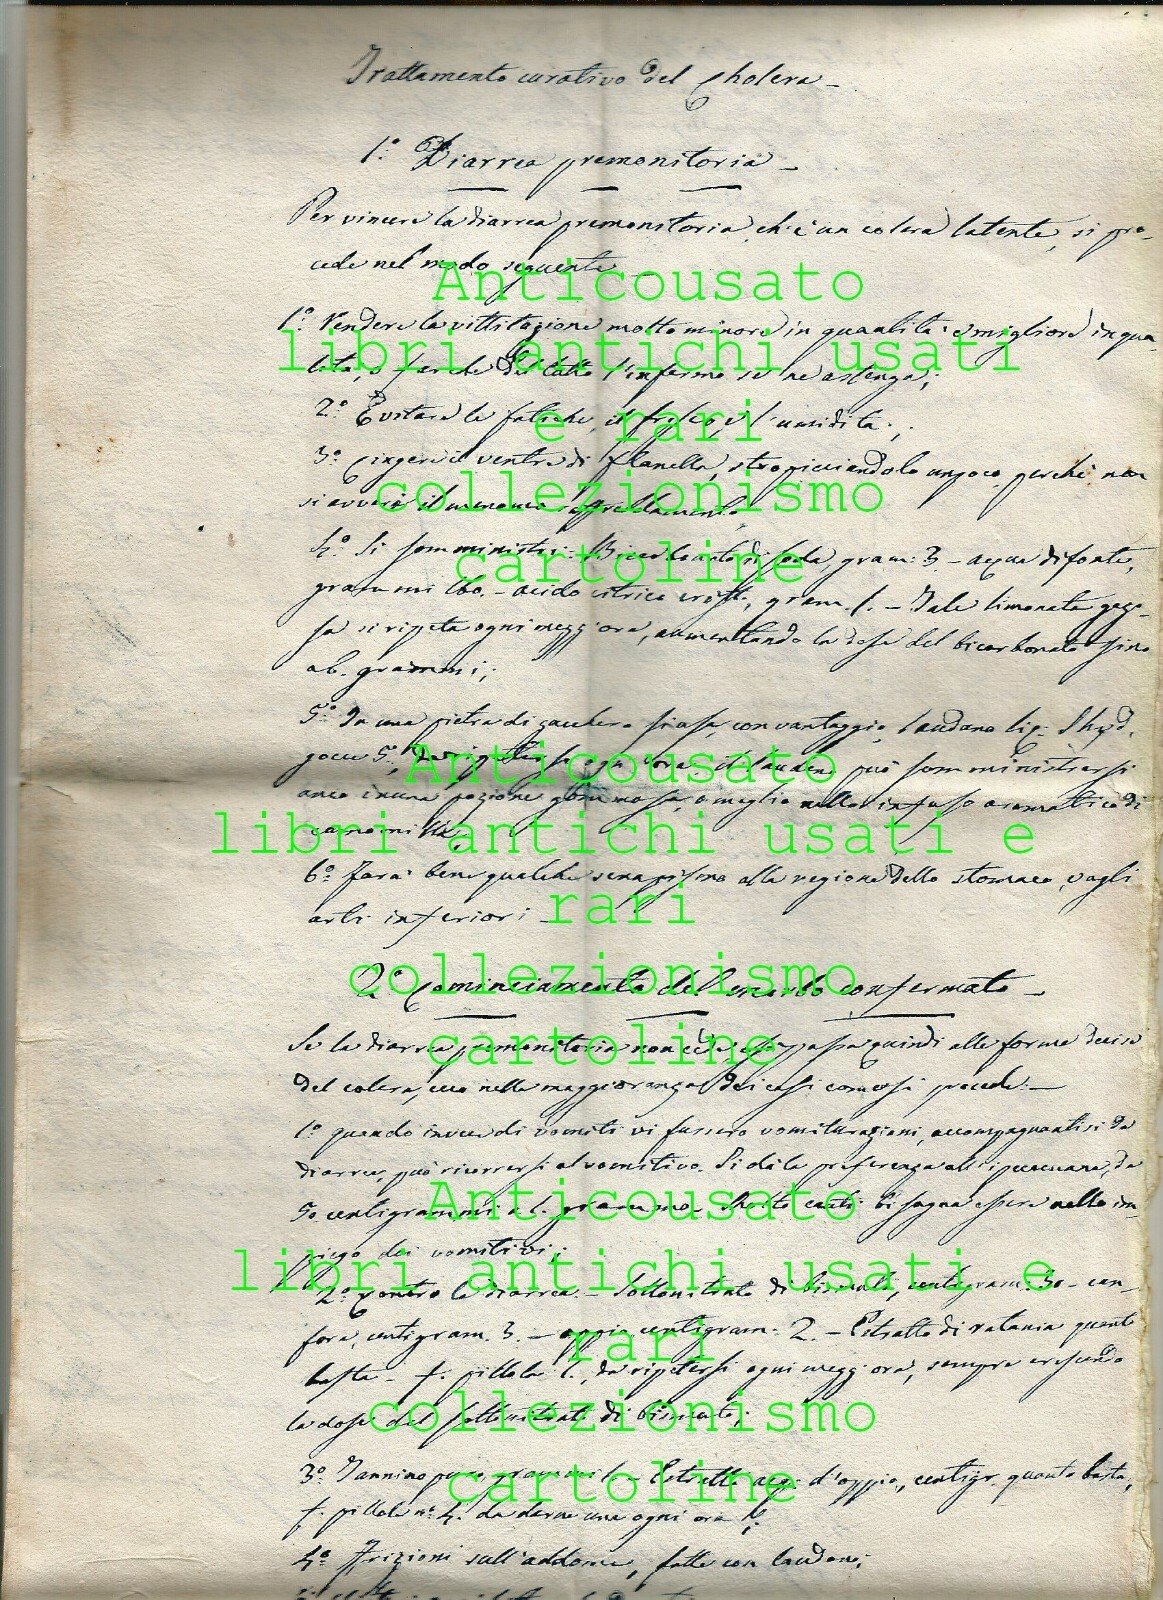 Trattamento curativo del Cholera -
1.° Diarrea premonitoria -
Per vincere la diarrea premonitoria, ch'è un colera latente, si pro-
cede nel modo seguente
1.° Rendere la vittitazione molto minore in quantità e migliore in qua-
lità, o far che del tutto l'infermo se ne astenga;
2.° Evitare le fatiche, il fresco, e l'umidità;
3.° Cingere il ventre di flanella, stropicciandolo un poco, perchè non
si avveri il menomo raffreddamento
4.° Si somministri: Bicarbonato di soda, gram: 3 - acqua di fonte,
grammi 160. - acido citrico crist., gram. 1. - Tale limonata gazo-
sa si ripeta ogni mezz'ora, aumentando la dose del bicarbonato sino
a 6. grammi;
5.° In una pietra di zucchero si usa, con vantaggio, laudano liq: Shyd.
gocce 5, da ripetersi ogni ora. Il laudano può somministrarsi
anco in una pozione gommosa, o meglio nello infuso aromatico di
camomilla;
6.° Farà bene qualche senapismo alla regione dello stomaco, o agli
arti inferiori -
2.° Cominciamento del morbo confermato -
Se la diarrea premonitoria non cede, e si passa quindi alle forme decise
del colera, ecco nella maggioranza dei casi come si procede: -
1.° quando invece di vomiti vi fussero vomiturazioni, accompagnantisi da
diarrea, può ricorrersi al vomitivo. Si dà la preferenza all'ipecacuana, da
50 centigrammi a 1. grammo. Molto cauti bisogna essere nello im-
piego dei vomitivi;
2.° Contro la diarrea - Sottonitrato di bismuto, centigram: 30 - can-
fora, centigram. 3. - oppio, centigram: 2. - Estratto di ratania quanto
basta - f. pillola 1., da ripetersi ogni mezz'ora, sempre crescendo
la dose del sottonitrato di bismuto;
3.° Tannino puro, grammi 1 - Estratto acq: d'oppio, centigr. quanto basta,
f. pillole n.° 4. da darne una ogni ora;
4.° Frizioni sull'addome, fatte con laudano;
Anticousato
libri antichi usati
e rari
collezionismo
cartoline
Anticousato
libri antichi usati e
rari
collezionismo
cartoline
Anticousato
libri antichi usati e
rari
collezionismo
cartoline